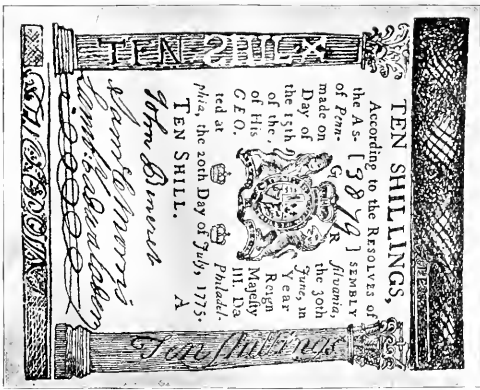 TEN SHILLINGS,
According to the RESOLVES of
the As- [3879] SEMBLY
of Penn- G R sylvania,
made on the 30th
Day of June, in
the 15th Year
of the Reign
of His Majesty
GEO. III. Da
ted at Philadel-
phia, the 20th Day of July, 1775.
TEN SHILL. A
John
Saml C Morris
TEN SHILx
Ten shillings